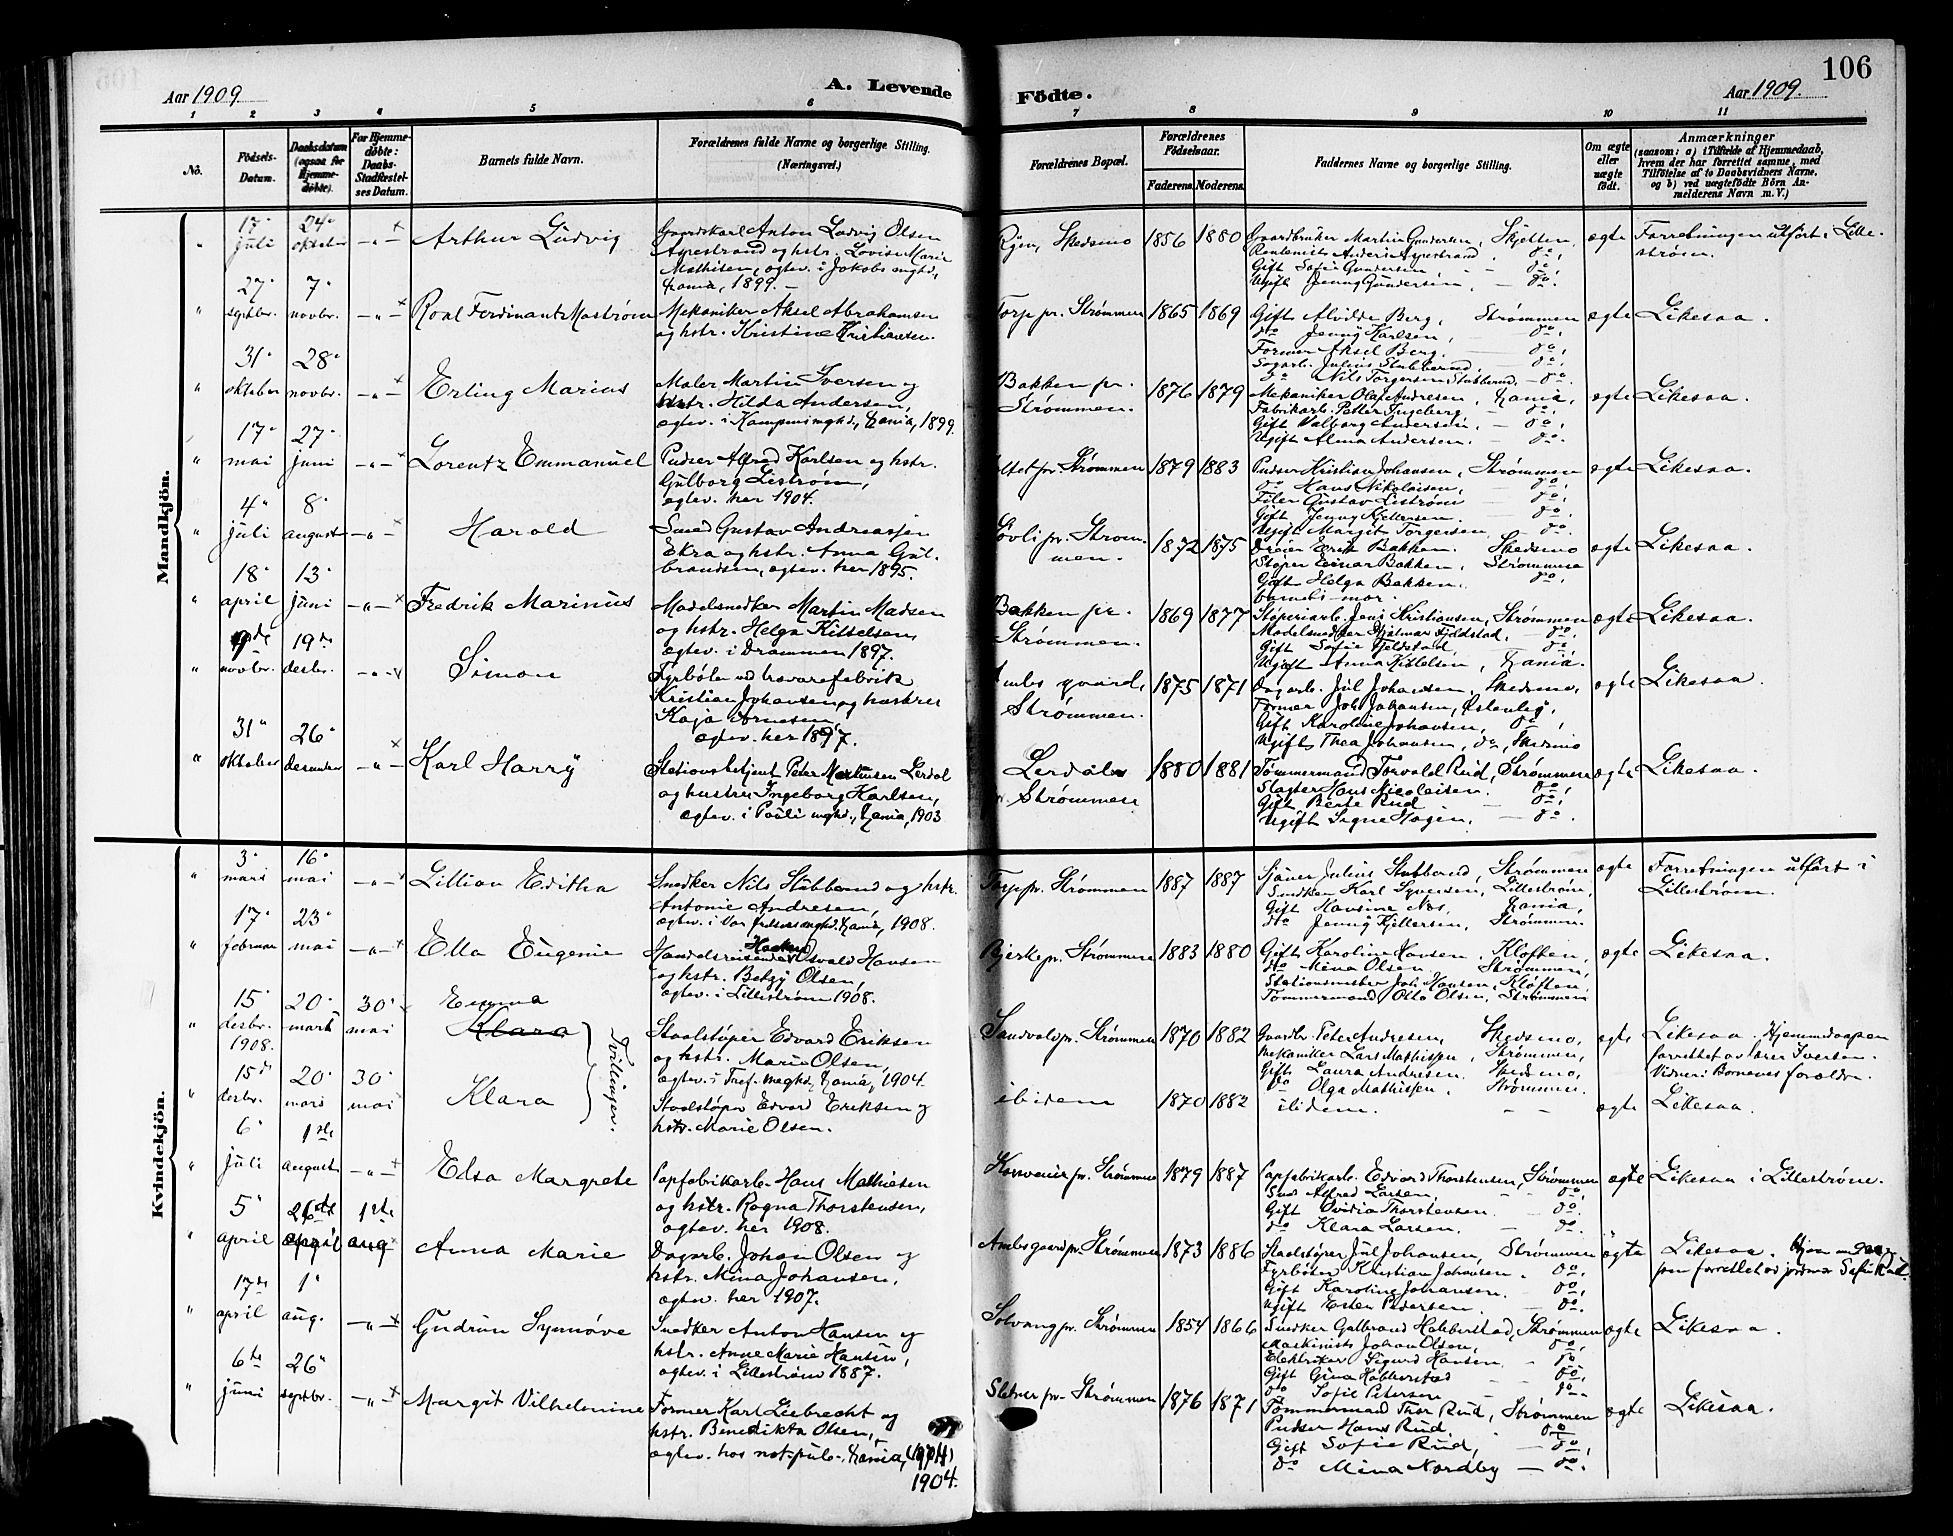 106
Aar 1909.
A. Levende Födte.
Aar 1909.
1 2 3 4 5 6 7 8 9 10 11
No.
Födsels-Datum.
Daabsdatum (ogsaa for Hjemmedøbte).
For Hjemmedøbte: Daabs-Stadfestelses Datum.
Barnets fulde Navn.
Forældrenes fulde Navne og borgerlige Stilling. (Næringsvei.)
Forældrenes Bopæl.
Forældrenes Födselsaar.
Faderens. Moderens.
Faddernes Navne og borgerlige Stilling.
Om ægte eller uægte født.
Anmærkninger
(saasom: a) i Tilfælde af Hjemmedaab, hvem der har forrettet samme, med Tilföielse af to Daabsvidners Navne, og b) ved uægtefödte Börn Anmelderens Navn m. V.)
Mandkjön.
" 17' juli 24' oktober -"- Arthur Ludvig
Gaardskarl Anton Ludvig Olsen
Aperstrand og hstr. Lovise Marie
Mathisen, egtev. i Jakobs mghd.,
Krania, 1899.
Skedsmo 1856 1880
Gaardbruker Martin Gundersen, Skjetten,
Gift Sofie Gundersen, do,
Ugift Jenny Gundersen, do.
ægte Forretningen utført i Lillestrøm.
" 27' septbr. 7' novbr. -"- Roal Ferdinant Mostrøm
Mekaniker Aksel Abrahamsen
og hstr. Kristine Kristiansen.
Torp pr. Strømmen 1865 1869
Gift Alvilde Berg, Strømmen
do Jenny Karlsen, do,
Former Aksel Berg. do,
Sagarb. Julius Stubberud, do,
do Nils Torgersen Stubberud. do.
ægte Likesaa.
" 31' oktober 28' novbr. -"- Erling Marius
Maler Martin Iversen og
hstr. Hilda Andersen,
egtev. i Kampens mghd., Krania, 1899.
Bakken pr. Strømmen. 1876 1879
Mekaniker Olaf Andresen, Krania,
Fabrikarb. Petter Ingeberg, do,
Gift Valborg Andersen, do,
Ugift Alma Andersen. do.
ægte Likesaa.
" 17' mai 27' juni -"- Lorentz Emmanuel
Pudser Alfred Karlsen og hstr.
Gulborg Liström,
egtev. her 1904.
pr. Strømmen 1879 1883
Pudser Kristian Johansen, Strømmen
do Hans Nikolaisen, do,
Filer Gustav Liström do,
Gift Jenny Kjellersen do,
Ugift Margit Torgersen, do.
ægte Likesaa.
" 4' juli 8' august -"- Harold
Smed Gustav Andreassen
Ekra og hstr. Anna Gulbrandsen, egtev. her 1895.
Løvli pr. Strømmen. 1872 1875
Dreier Erik Bakken. Skedsmo
Støper Einar Bakken, Strømmen
Gift Helga Bakken. do,
barnets mor.
ægte Likesaa.
" 18' april 13' juni -"- Fredrik Marinus
Modelsnedker Martin Madsen
og hstr. Helga Kittelsen,
egtev. i Drammen 1897.
Bakken pr. Strømmen. 1869 1877
Støperiarb. Jens Kristiansen, Strømmen
Modelsnedker Hjalmar Fjeldstad, do,
Gift Sofie Fjeldstad, do,
Ugift Anna Kittelsen, Krania.
ægte Likesaa.
" 9de novbr. 19de desbr. -"- Simon
Fyrbøter ved travarefabrik
Kristian Johansen og hustru
Kaja Arnesen,
egtev. her 1897.
gaard, Strømmen. 1875 1871
Dagarb. Jul Johansen, Skedsmo,
Former Joh. Johansen, Østenlug,
Gift Karoline Johansen, do,
Ugift Thea Johansen, do, Skedsmo
ægte Likesaa.
" 31' oktober 26' desember -"- Karl Harry
Stationsbetjent Peter Martinsen Lerdal
og hustru Ingeborg Karlsen,
egtev. i Pauli mghd., Krania, 1903
Lerdal pr. Strømmen 1880 1881
Tømmermand Torvald Rud, Strømmen
Slagter Hans Nicolaisen. do,
Gift Berte Rud do,
Ugift Signe Hagen, do.
ægte Likesaa.
Kvindekjön.
" 3' mars 16' mai -"- Lillian Editha
Snedker Nils Stubberud og hstr.
Antonie Andresen,
egtev. i Vor frelsers mghd. Krania, 1908.
Torp pr. Strømmen 1887 1887
Julius Stubberud, Strømmen
Snedker Karl Syversen, Lillestrøm,
Gift Hansine Næs, Krania,
do Jenny Kjellersen, Strømmen
ægte Forretningen utført i Lillestrøm.
" 17' februar 23' mai -"- Ella Eugenie
Handelsreisende Osvald Hansen
og hstr. Betzy Olsen,
egtev. i Lillestrøm 1908.
Bjerke pr. Strømmen 1883 1880
Gift Karoline Hansen, Kløften,
do Mina Olsen Strømmen,
Stationsmester Joh. Hansen, Kløften,
Tømmermand Otto Olsen, Strømmen
ægte Likesaa.
" 15' desbr. 1908. 20' mars 30' mai Emma
Klara
Tvillinger.
Staalstøper Edvard Eriksen
og hstr. Marie Olsen,
egtev. i Tref. mghd., Krania, 1904.
Sandvold pr. Strømmen 1870 1882
Gaardbr. Peter Andresen, Skedsmo,
Mekaniker Lars Mathissen, Strømmen,
Gift Laura Andresen. Skedsmo,
do Olga Mathissen, Strømmen.
ægte Likesaa. Hjemmedaapen
forrettet av lærer Iversen.
Vidner: Barnenes forældre.
" 15de desbr. 20' mars 30' mai Klara
Staalstøper Edvard Eriksen og
hstr. Marie Olsen.
ibidem 1870 1882 ibidem. ægte Likesaa.
" 6' juli 1ste august -"- Elsa Margrete
Papfabrikarb. Hans Mathiesen
og hstr. Ragna Thorstensen,
egtev. her 1908.
pr. Strømmen 1879 1887
Papfabrikarb. Edvard Thorstensen, Strømmen
Smed Alfred Larsen, do,
Gift Ovidia Thorstensen do.
do Klara Larsen. do.
ægte Likesaa i Lillestrøm.
" 5' april 26de april 1ste aug. Anna Marie
Dagarb. Johan Olsen og
hstr. Mina Johansen,
egtev. her 1907.
Ambsgaard pr. Strømmen 1873 1886
Staalstøper Jul Johansen, Strømmen
Fyrbøter Kristian Johansen, do,
Gift Karoline Johansen. do,
Ugift Ester Pedersen do.
ægte Likesaa.
" 17de april 1' aug. -"- Gudrun Synnøve
Snedker Anton Hansen og
hstr. Anne Marie Hansen,
egtev. i Lillestrøm 1887.
Solvang pr. Strømmen 1854 1866
Snedker Gulbrand Habberstad, Strømmen
Maskinist Johan Olsen, do,
Elektriker Sigurd Hansen do
Gift Gina Habberstad do,
do Sofie Petersen do.
ægte Likesaa.
" 6te juni 26' septbr. -"- Margit Vilhelmine
Former Karl Liebrecht og
hstr. Benedikta Olsen,
egtev. hos not. pub., Krania, (1904)
1904.
pr. Strømmen 1876 1871
Tømmermand Thor Rud, Strømmen
Pudser Hans Rud. do
Gift Sofie Rud, do,
do Mina Nordby do.
ægte Likesaa.